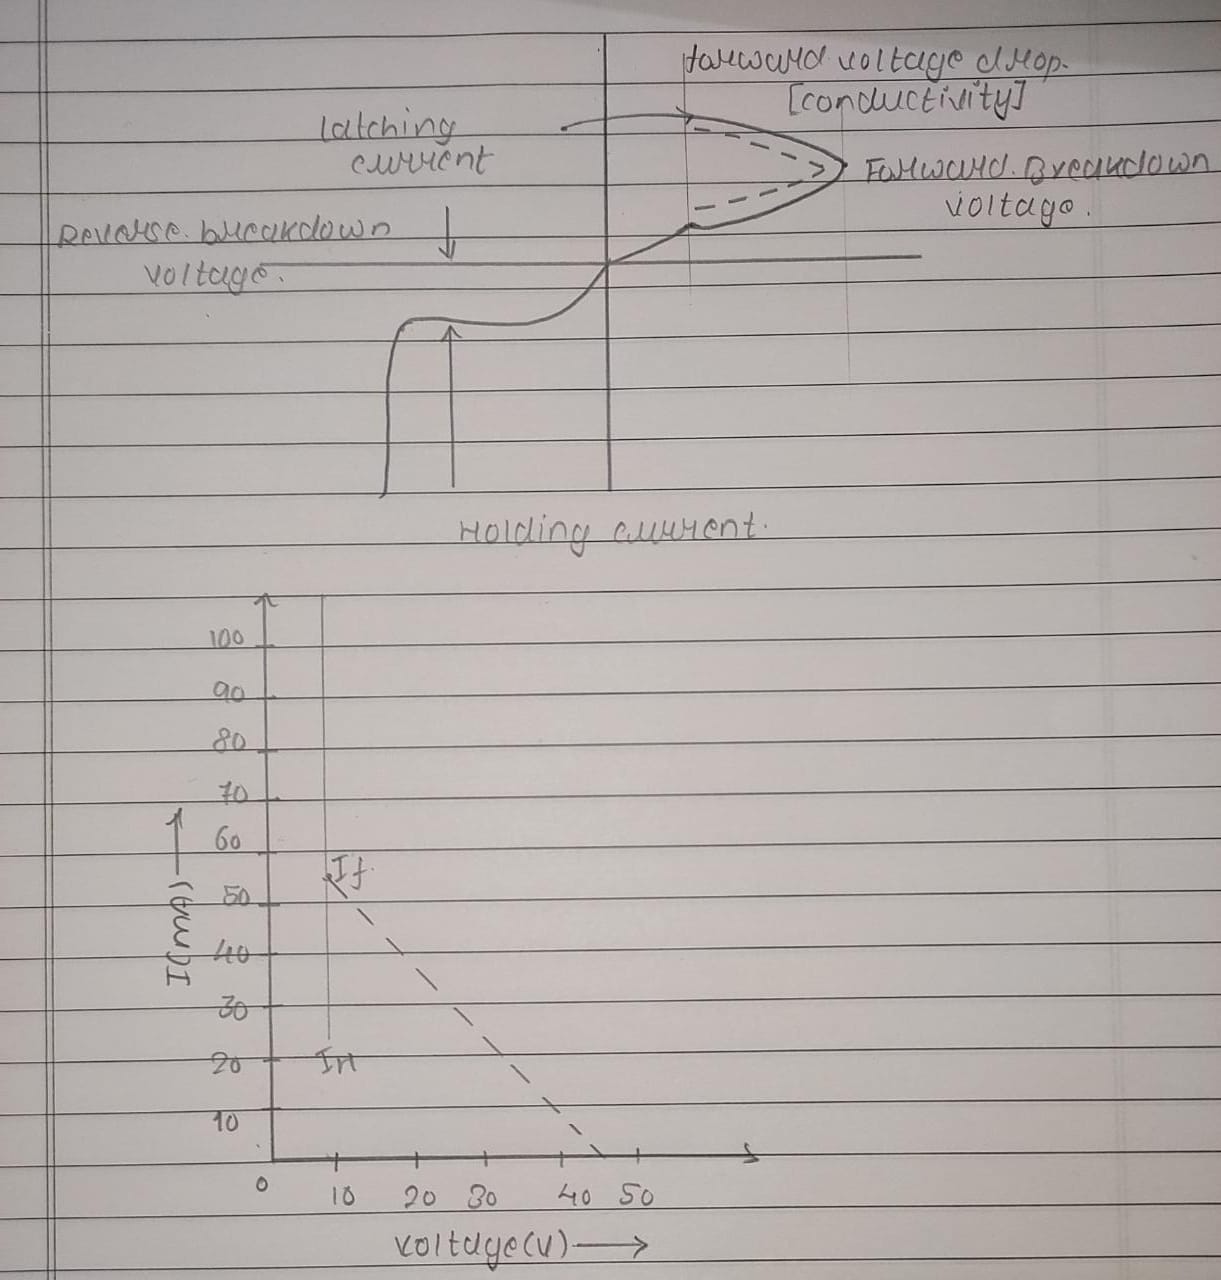 forward voltage drop.
[conductivity]
latching
current
Forward. Breakdown
voltage.
Reverse. breakdown
voltage.
Holding current.
100
90
80
70
60
If.
50
40
30
20
IH
10
I(mA)
0
10 20 30 40 50
voltage(v)